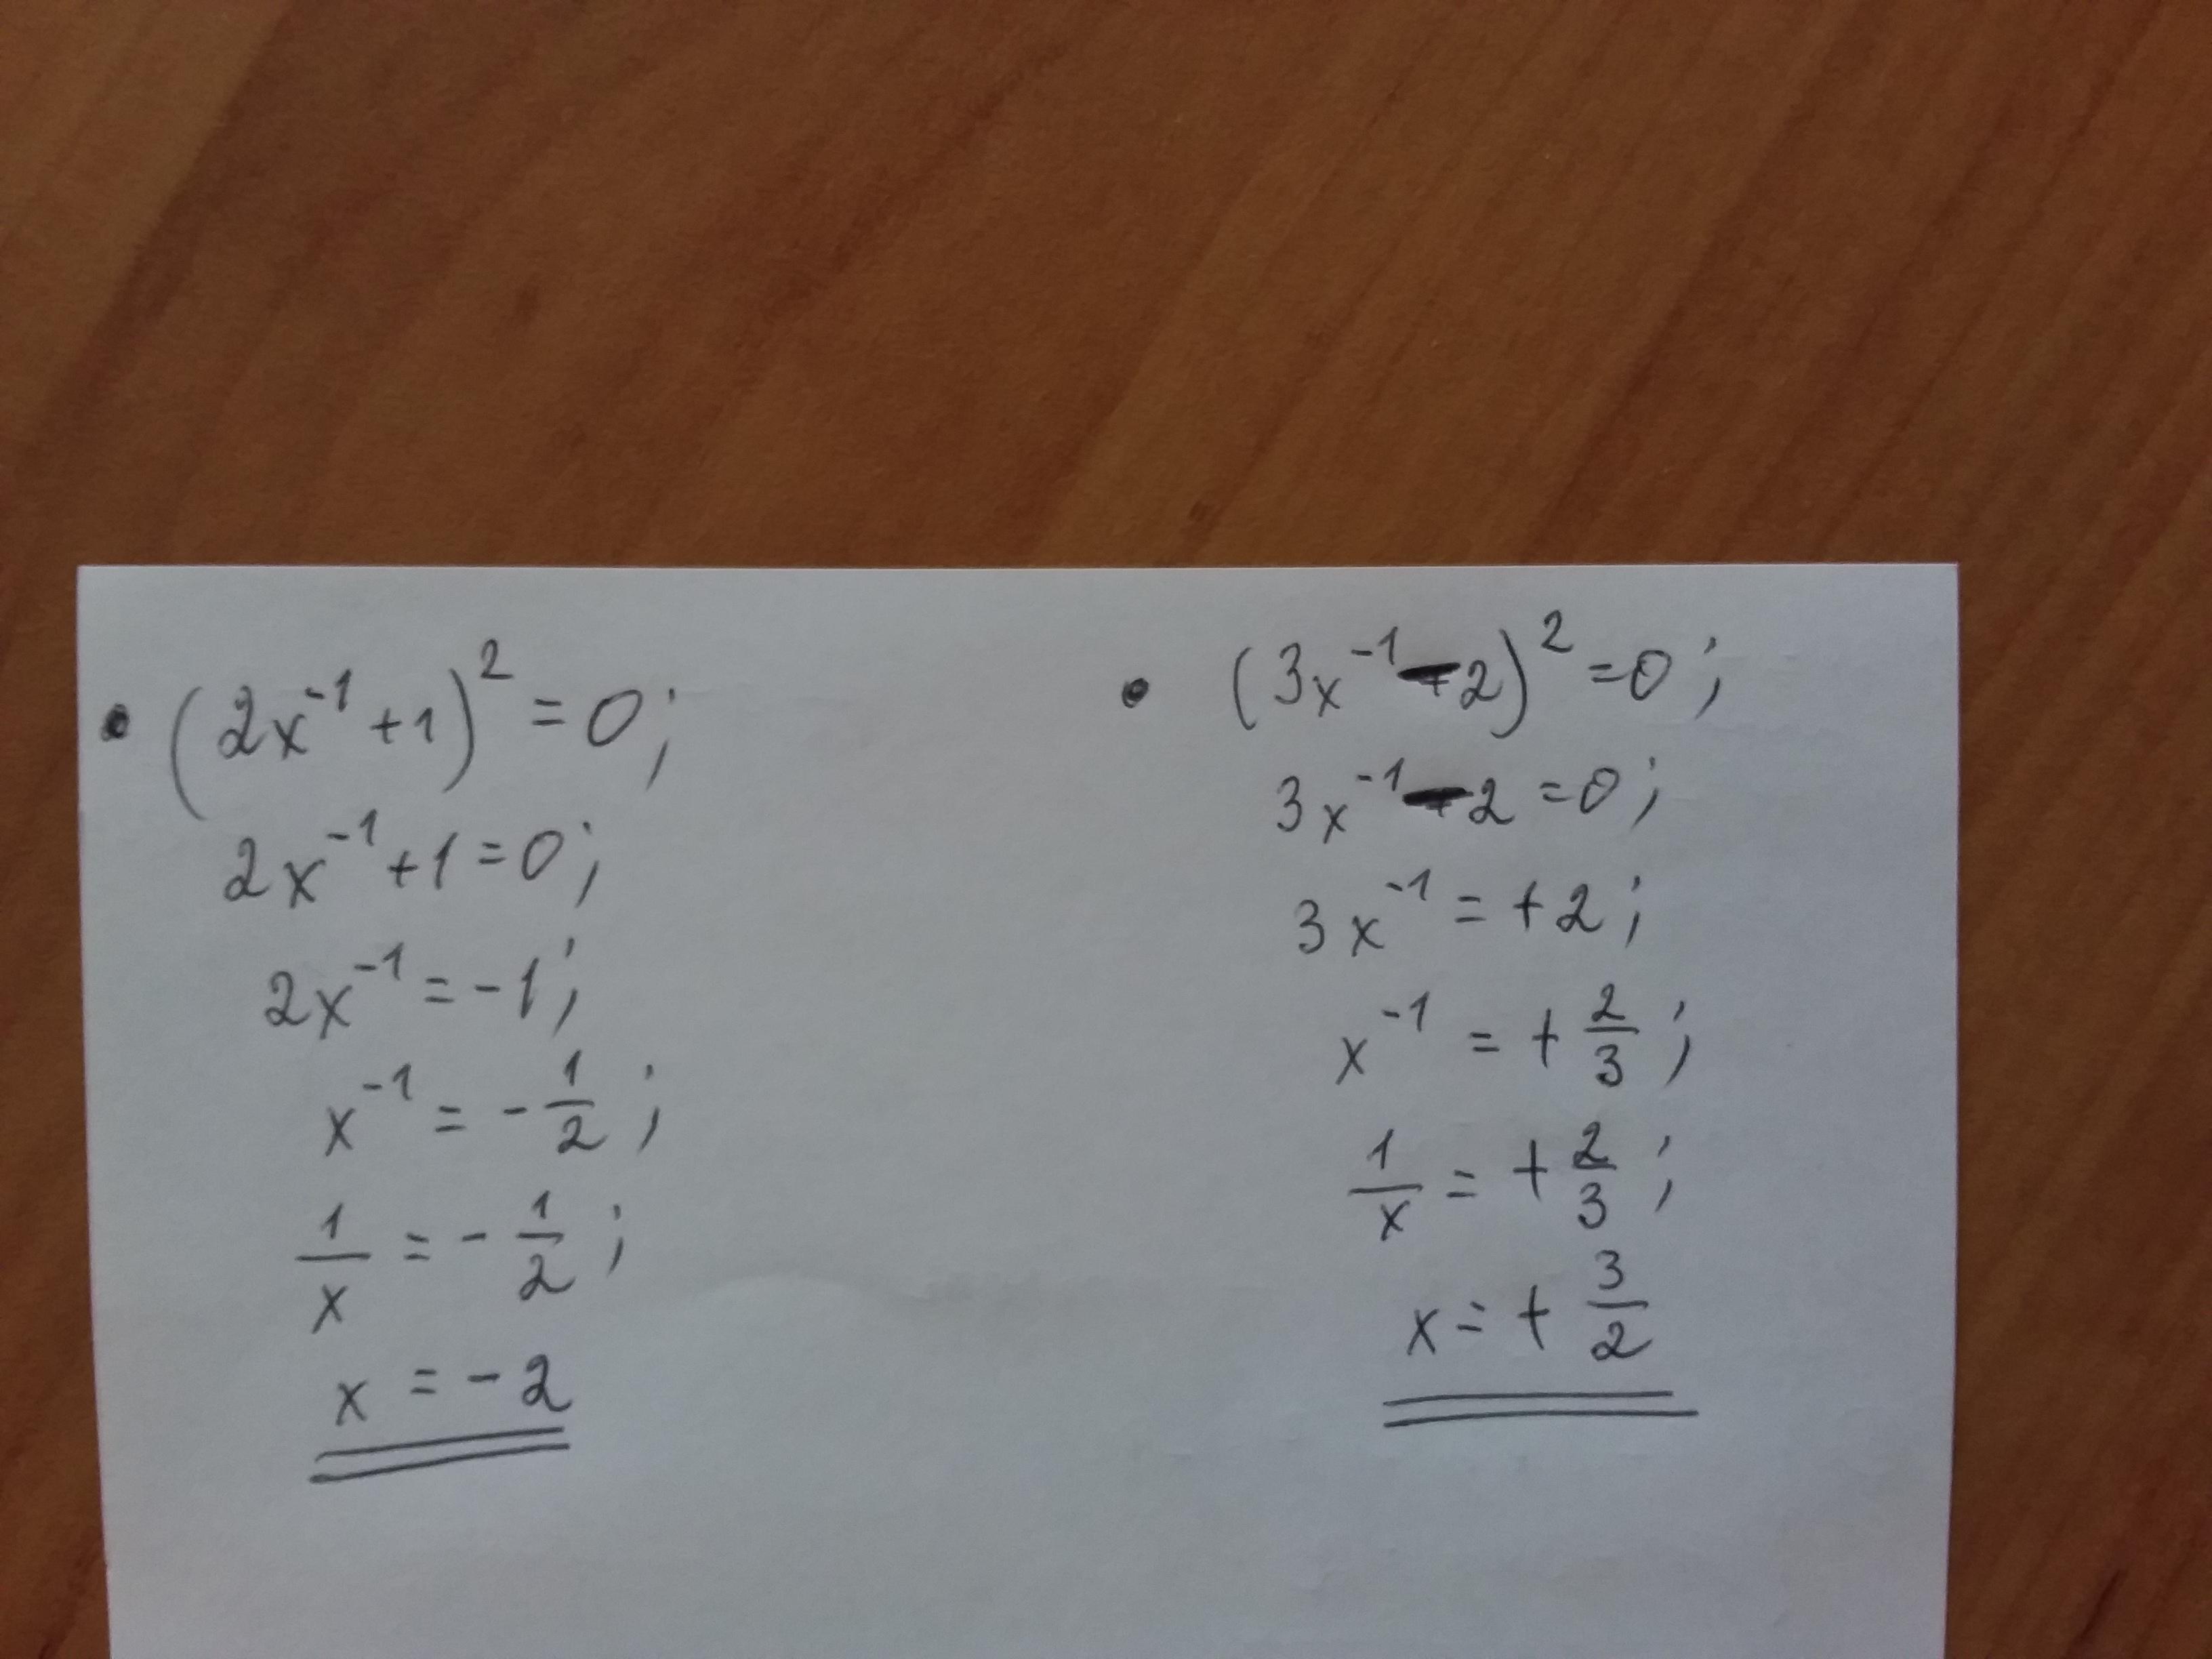 • (2x⁻¹ + 1)² = 0;
2x⁻¹ + 1 = 0;
2x⁻¹ = - 1;
x⁻¹ = - 1/2;
1/x = - 1/2;
x = - 2
• (3x⁻¹ - 2)² = 0;
3x⁻¹ - 2 = 0;
3x⁻¹ = + 2;
x⁻¹ = + 2/3;
1/x = + 2/3;
x = + 3/2